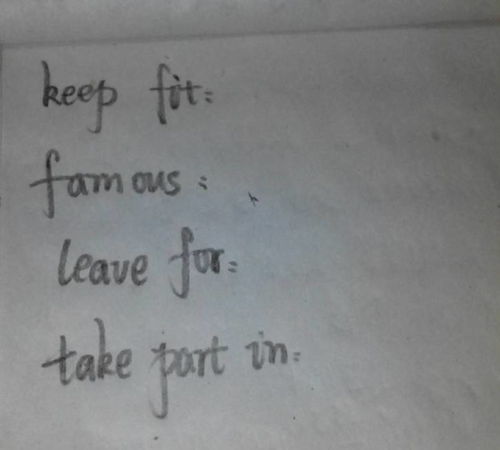 keep fit:
famous:
leave for:
take part in: